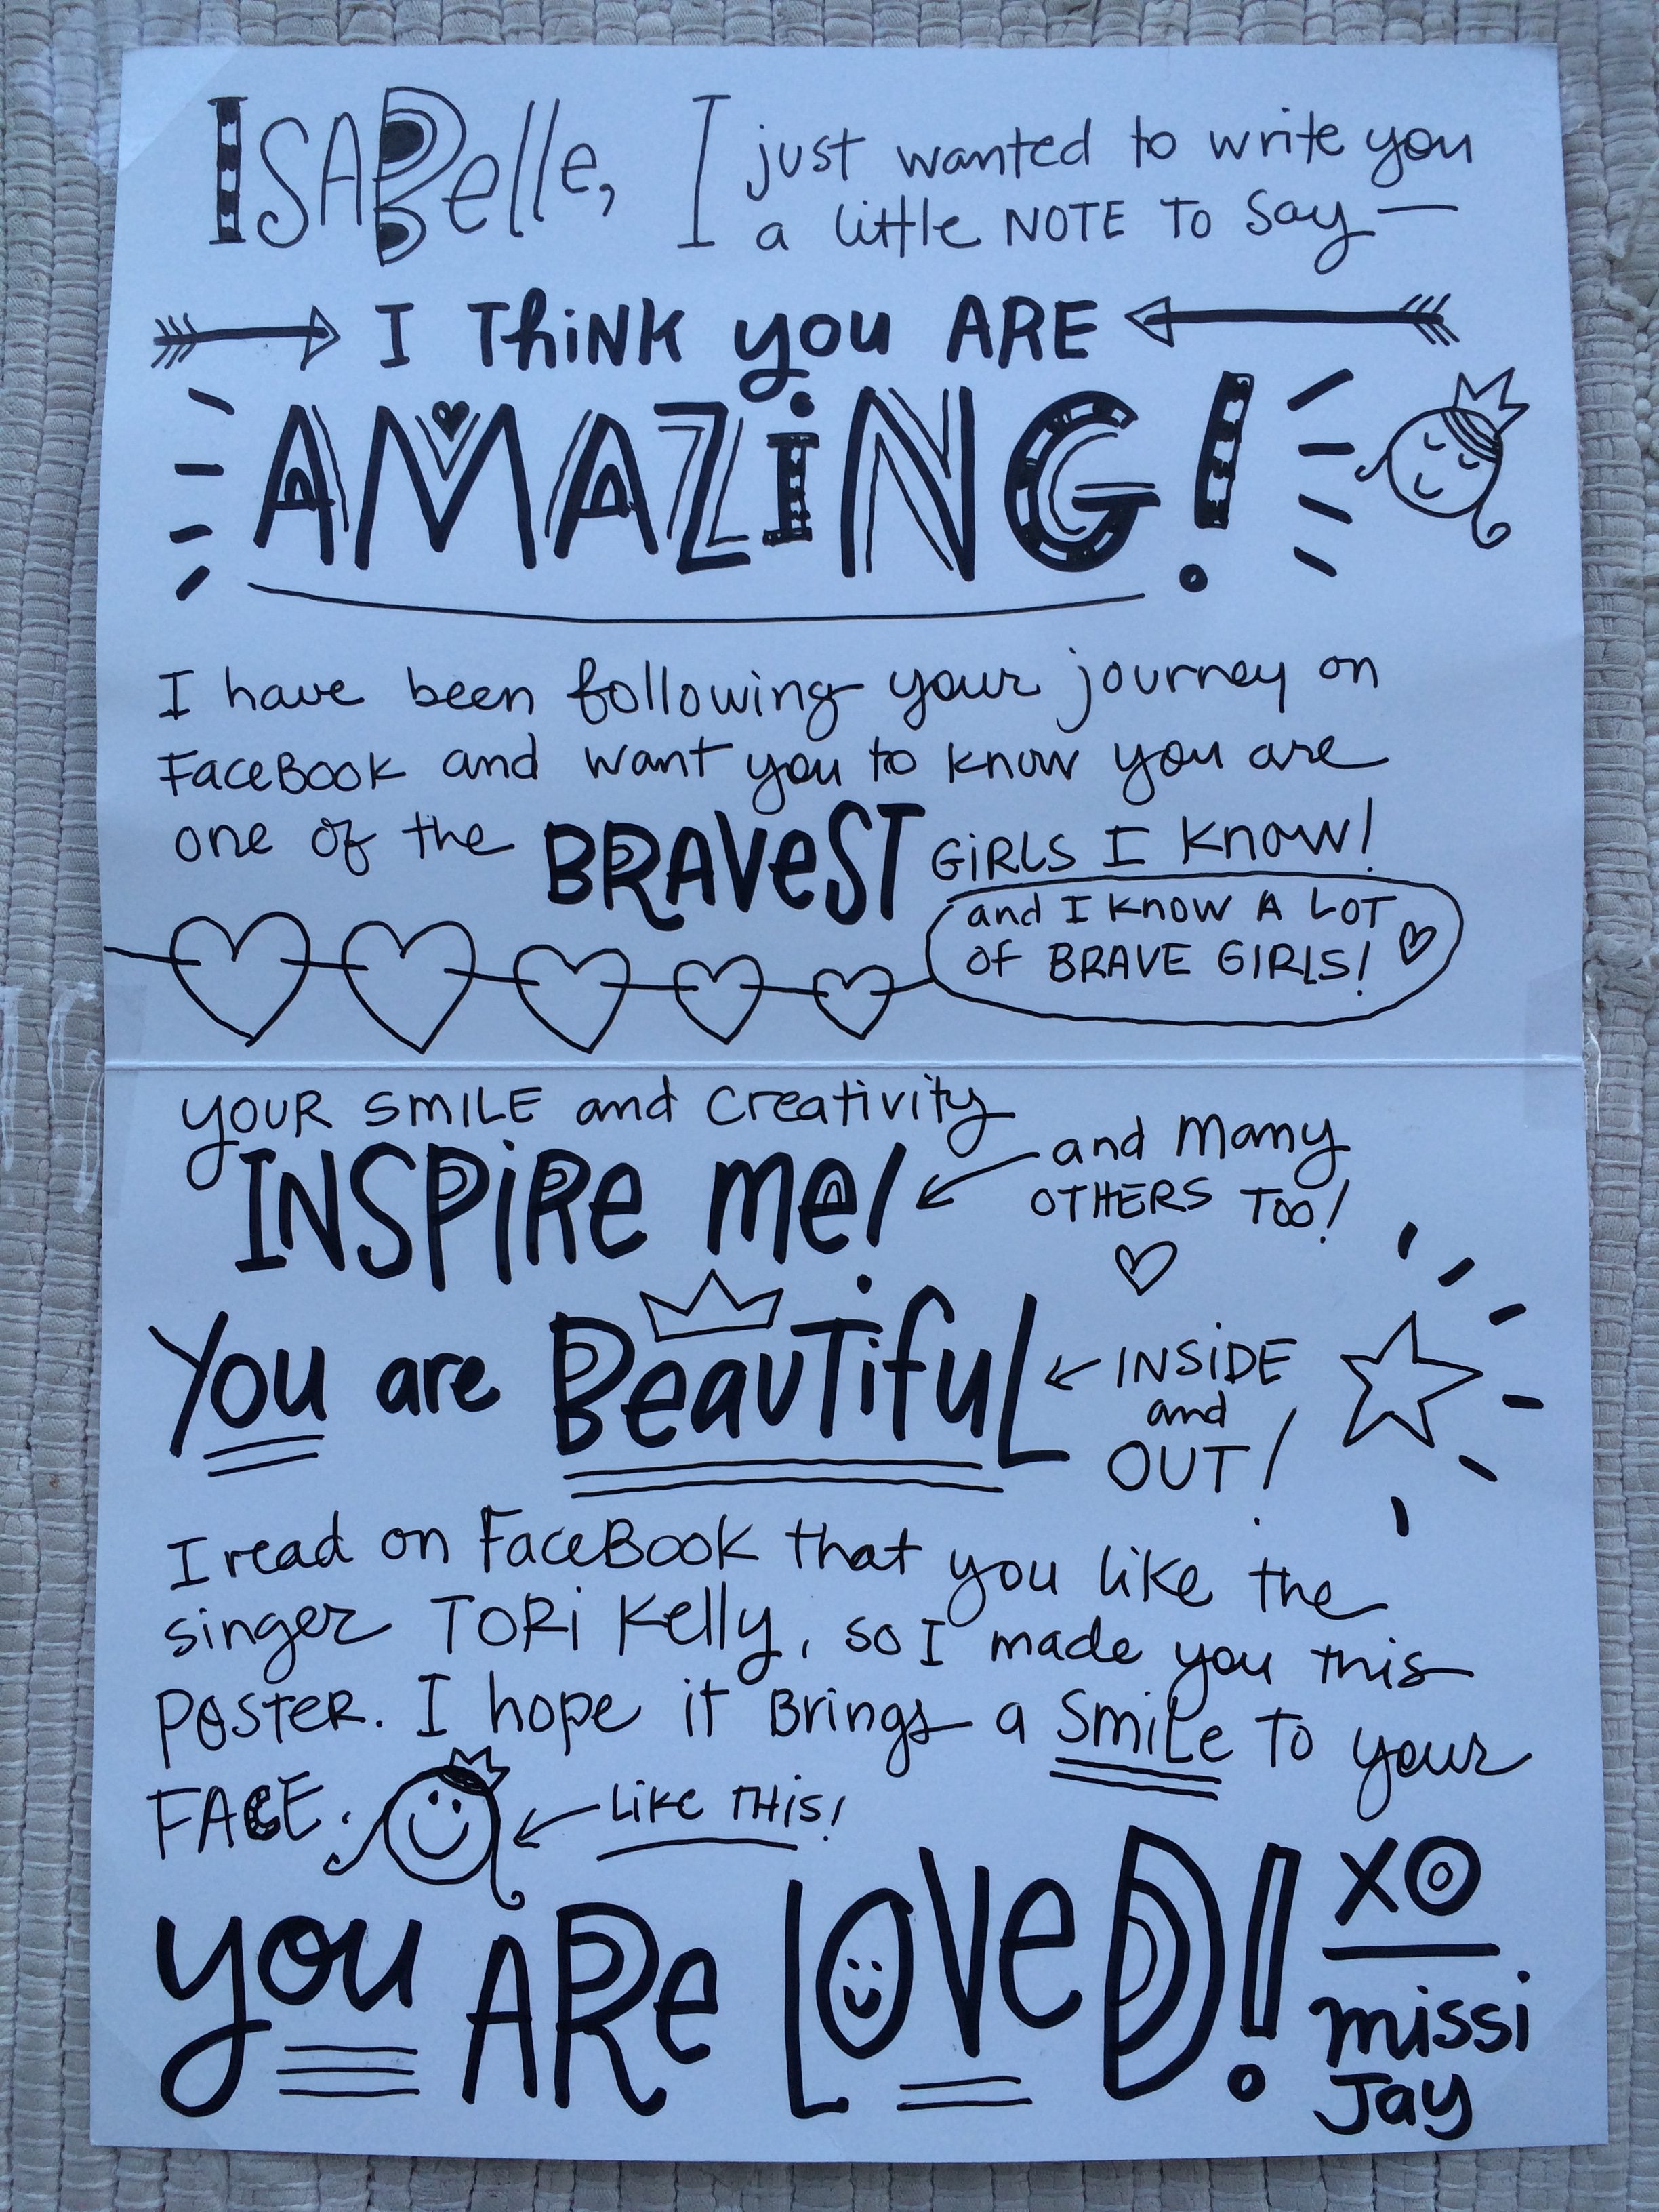 ISABelle, I just wanted to write you
a little NOTE TO Say —
I ThiNK you ARE
AMAZiNG!
I have been following your journey on
FaceBook and want you to know you are
one of the BRAVeST GiRLS I know!
and I know A LOT
OF BRAVE GIRLS!
YOUR SMILE and Creativity
INSPiRe me!
and Many
OTHERS TOO!
You are BeauTifuL
INSiDE
and
OUT!
I read on FaceBook that you like the
singer TORi Kelly, so I made you this
POSTER. I hope it Brings a SmiLe To your
FACE.
Like THis!
you ARe LOVeD!
XO
missi
Jay